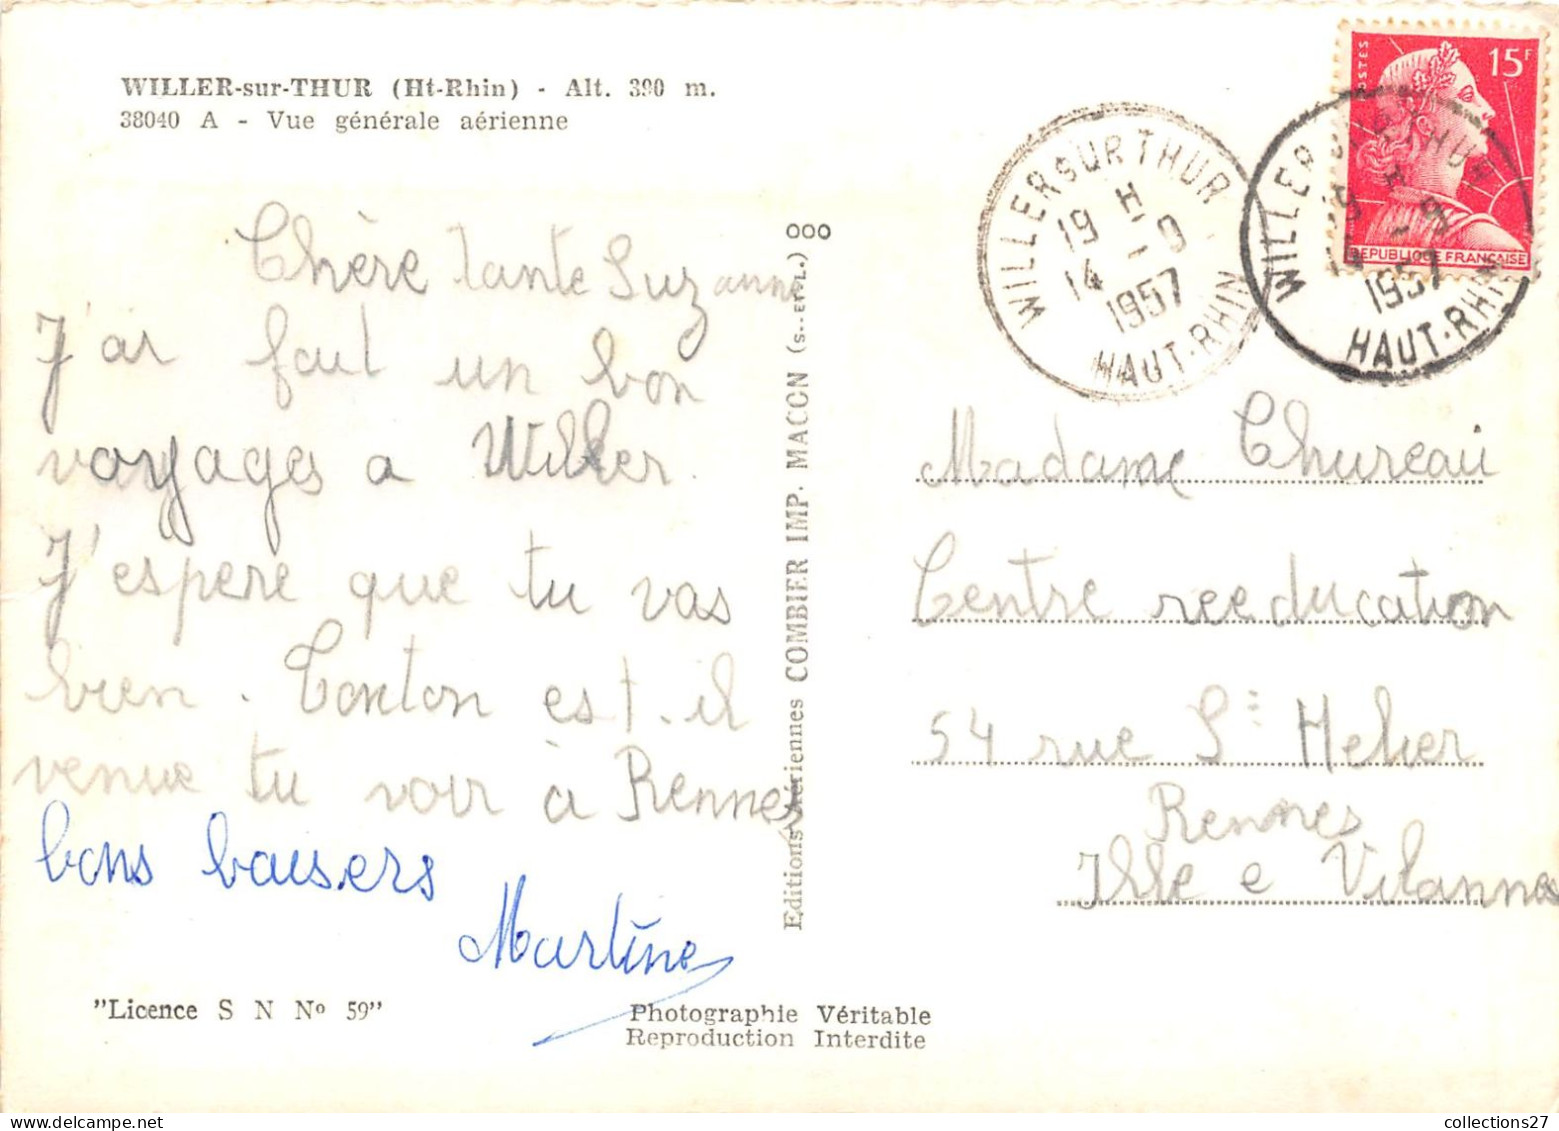 WILLER-sur-THUR (Ht-Rhin) - Alt. 390 m.
38040 A - Vue générale aérienne
Chère tante Suzanne
J'ai fait un bon
voyages a Willer.
J'espere que tu vas
bien. Tonton est-il
venue tu voir à Rennes
bons baisers
Martine
"Licence S N Nº 59"
Photographie Véritable
Reproduction Interdite
Editions Aériennes COMBIER IMP. MACON (S.-ET-L.)
000
WILLER SUR THUR
19 H
14 - 9
1957
HAUT-RHIN
WILLER SUR THUR
19 H
14 - 9
1957
HAUT-RHIN
POSTES
15F
REPUBLIQUE FRANCAISE
Madame Thureau
Centre reeducation
54 rue St Helier
Rennes
Ille e Vilannes
collections27